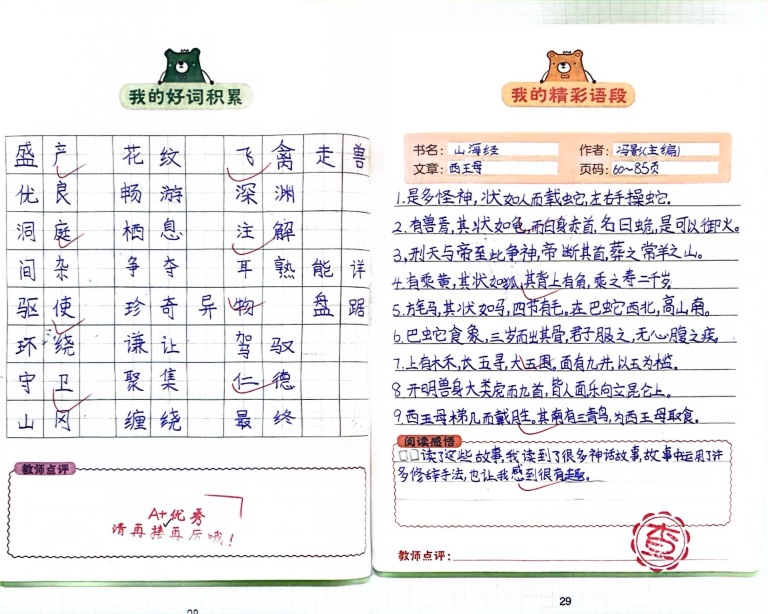 我的好词积累
盛产 花纹 飞禽走兽
优良 畅游 深渊
洞庭 栖息 注解
间杂 争夺 耳熟能详
驱使 珍奇异物 盘踞
环绕 谦让 驾驭
守卫 聚集 仁德
山冈 缠绕 最终
教师点评
A+优秀
请再接再厉哦!
28
我的精彩语段
书名: 山海经 作者: 冯影(主编)
文章: 西王母 页码: 60~85页
1.是多怪神,状如人而载蛇,左右手操蛇。
2.有兽焉,其状如龟,而白身赤首,名曰蛫,是可以御火。
3,刑天与帝至此争神,帝断其首,葬之常羊之山。
4.有乘黄,其状如狐,其背上有角,乘之寿二千岁
5.旄马,其状如马,四节有毛。在巴蛇西北,高山南。
6.巴蛇食象,三岁而出其骨,君子服之,无心腹之疾。
7.上有木禾,长五寻,大五围。面有九井,以玉为槛。
8 开明兽身大类虎而九首,皆人面乐向立昆仑上。
9.西王母梯几而戴胜。其南有三青鸟,为西王母取食。
阅读感悟
读了这些故事,我读到了很多神话故事,故事中运用了许
多修辞手法,也让我感到很有趣。
教师点评:
29